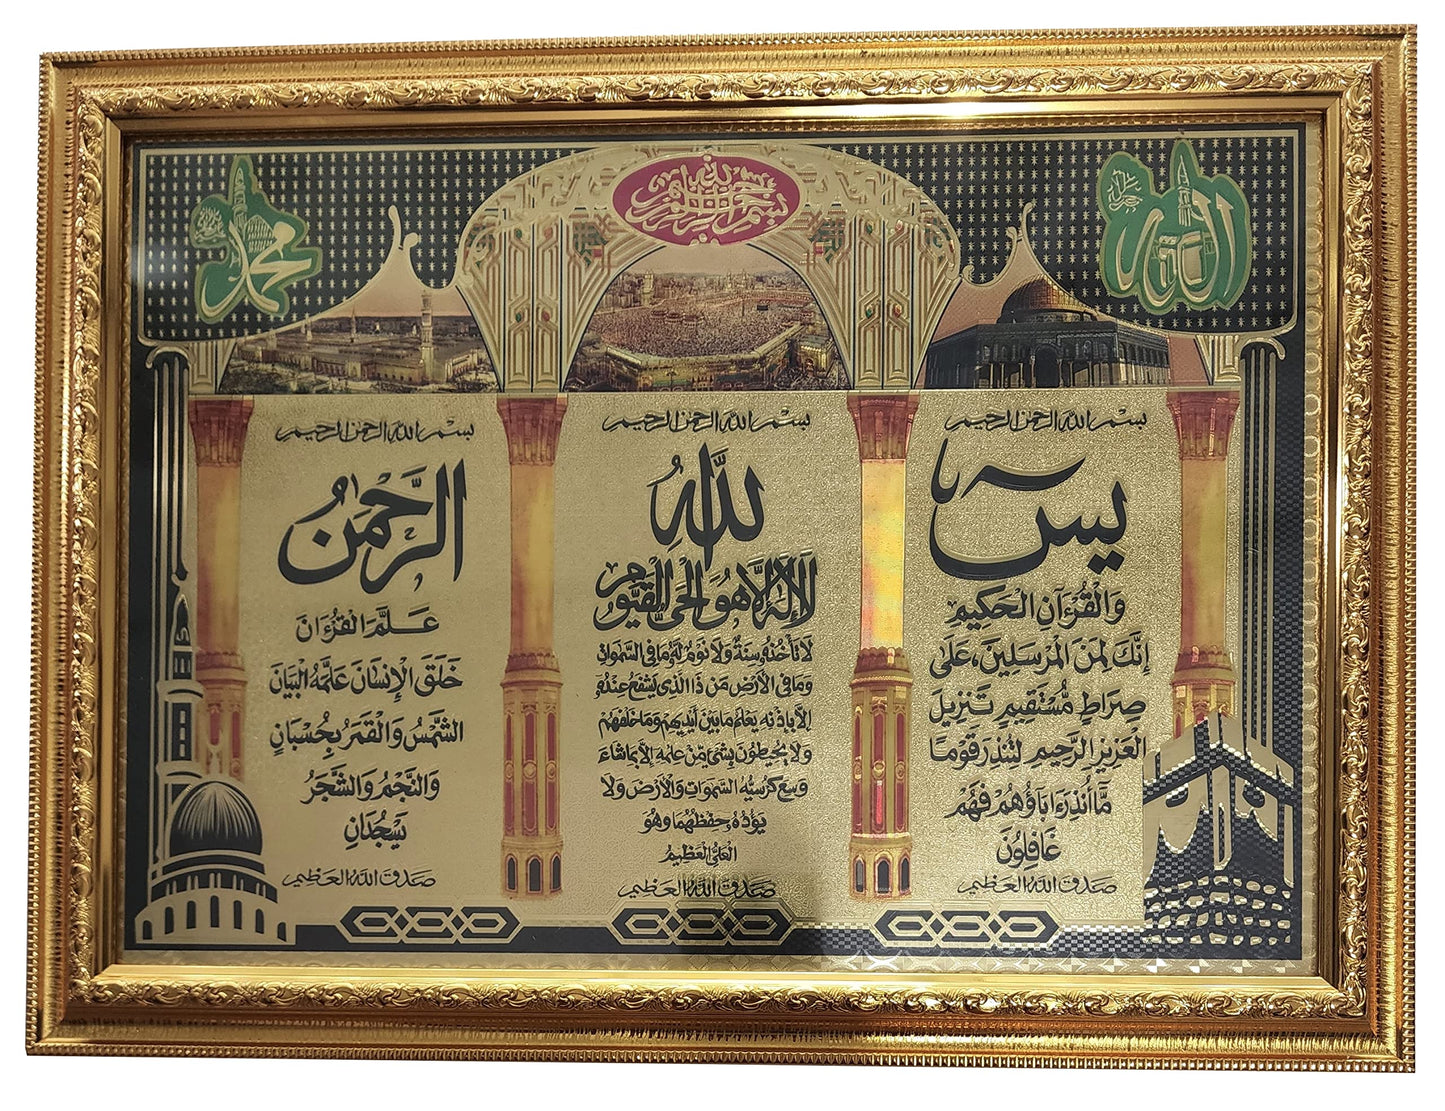 بسم الله الرحمن الرحيم
الله
جل جلاله
محمد
بسم الله الرحمن الرحيم
يس
وَالْقُرْءَانِ الْحَكِيمِ
إنَّكَ لَمِنَ الْمُرْسَلِينَ، عَلَى
صِرَاطٍ مُّسْتَقِيمٍ تَنزِيلَ
الْعَزِيزِ الرَّحِيمِ لِتُنذِرَ قَوْمًا
مَّا أُنْذِرَ ءَابَاؤُهُمْ فَهُمْ
غَافِلُونَ
صدق الله العظيم
بسم الله الرحمن الرحيم
اللَّهُ
لَا إِلَٰهَ إِلَّا هُوَ الْحَيُّ الْقَيُّومُ
لَا تَأْخُذُهُ سِنَةٌ وَلَا نَوْمٌ لَهُ مَا فِي السَّمَوَاتِ
وَمَا فِي الْأَرْضِ مَنْ ذَا الَّذِي يَشْفَعُ عِنْدَهُ
إِلَّا بِإِذْنِهِ يَعْلَمُ مَا بَيْنَ أَيْدِيهِمْ وَمَا خَلْفَهُمْ
وَلَا يُحِيطُونَ بِشَيْءٍ مِّنْ عِلْمِهِ إِلَّا بِمَا شَاءَ
وَسِعَ كُرْسِيُّهُ السَّمَوَاتِ وَالْأَرْضَ وَلَا
يَؤُدُهُ حِفْظُهُمَا وَهُوَ
الْعَلِيُّ الْعَظِيمُ
صدق الله العظيم
بسم الله الرحمن الرحيم
الرَّحْمَنُ
عَلَّمَ الْقُرْءَانَ
خَلَقَ الْإِنسَانَ عَلَّمَهُ الْبَيَانَ
الشَّمْسُ وَالْقَمَرُ بِحُسْبَانٍ
وَالنَّجْمُ وَالشَّجَرُ
يَسْجُدَانِ
صدق الله العظيم